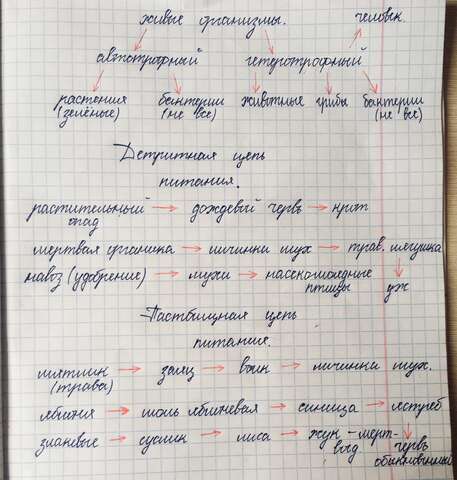 живые организмы. человек.
автотрофный гетеротрофный
растения бактерии животные грибы бактерии
(зелёные) (не все) (не все)
Детритная цепь
питания.
растительный → дождевый червь → крот
опад
мертвая органика → личинки мух → трав. лягушка
навоз (удобрение) → мухи → насекомоядные
птицы уж
Пастбищная цепь
питания.
мятлик → заяц → волк → личинки мух.
(трава)
яблоня → моль яблоневая → синица → ястреб
злаковые → суслик → лиса → жук-мерт-
воед червь
обыкновенный